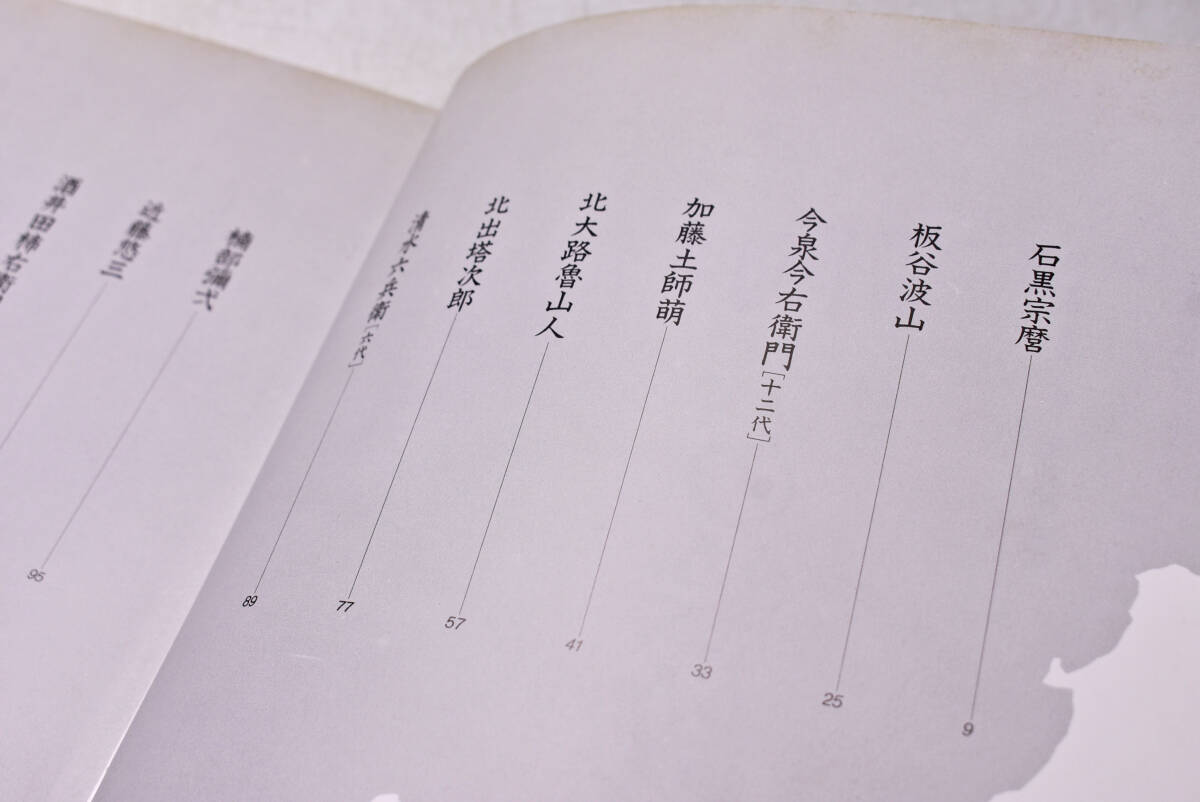 石黒宗麿 9
板谷波山 25
今泉今右衛門[十二代] 33
加藤土師萌 41
北大路魯山人 57
北出塔次郎 77
清水六兵衛[六代] 89
楠部彌弌 95
近藤悠三
酒井田柿右衛門